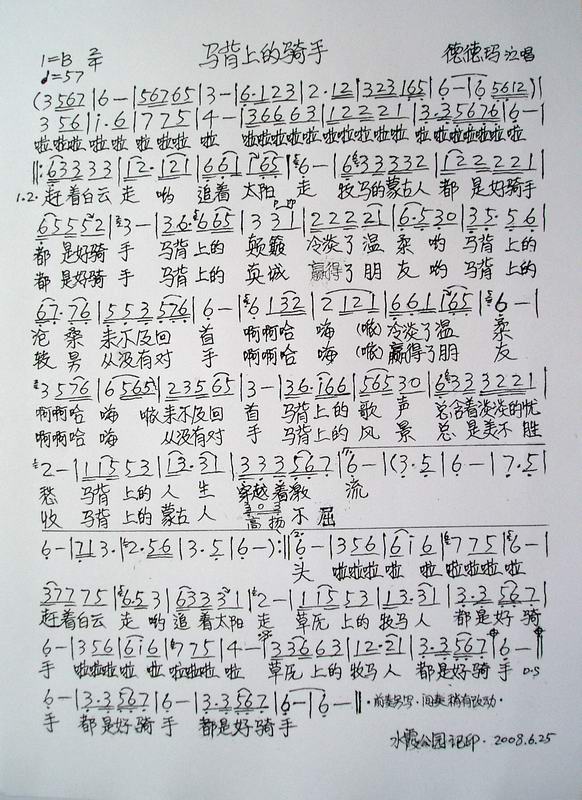 马背上的骑手
1=B 2/4 德德玛 演唱
♩=57
(3567|6-|56765|3-|6·123|2·12|323165|6-|6 5612)|
356|i·6|775|4-|36663|12221|3·35676|6-|
啦啦啦 啦 啦 啦啦啦 啦 啦啦啦啦啦啦啦啦啦啦 啦啦啦啦 啦
||:63333|12·121|661 165|6-|633332|1222221|
1.2.赶着白云 走 哟 追着 太阳 走 牧马的蒙古人 都 是好骑手
65552|3-|36·665|331|22221|6·530|35·56|
都 是好骑 手 马背 上的 颠簸 冷淡了 温 柔 哟 马背 上的
都 是好骑 手 马背 上的 英俊 赢得了 朋 友 哟 马背 上的
67·76|553576|6-|6132|2121|661165|6-|
沧 桑 来不及回 首 啊啊哈 嗨 (嗽) 冷淡了温 柔
较 男 从没有对 手 啊啊哈 嗨 (嗽) 赢得了朋 友
3576|6565|23565|3-|36·166|56530|6333221|
啊啊哈 嗨 嗽来不及回 首 马背 上的 歌 声 总含着淡淡的忧
啊啊哈 嗨 从没有对 手 马背 上的 风 景 总 是美不 胜
2-|11553|13·31|333567|6-|(3·5|6-|7·5|
愁 马背 上的 人 生 穿越着激 流
收 马背 上的 蒙古 人 高扬 不 屈
6-|713·|2·56|3·5|6-):||6-|356|616|775|6-|
头 啦啦啦 啦 啦 啦啦啦 啦
37775|6·53|633331|2-|11553|13·31|3·3567|
赶着白云 走 哟 追 着太阳 走 草原 上的 牧马 人 都 是好 骑
6-|356|616|775|4-|33663|12·21|3·3567|6-|
手 啦啦啦 啦 啦 啦啦啦 啦 草原 上的 牧马 人 都是好骑 手 D.S
6-|3·3567|6-|3·3567|6-|6-||·前奏另写·间奏稍有改动·
手 都 是好骑 手 都 是好骑 手
水霞公园记印·2008.6.25